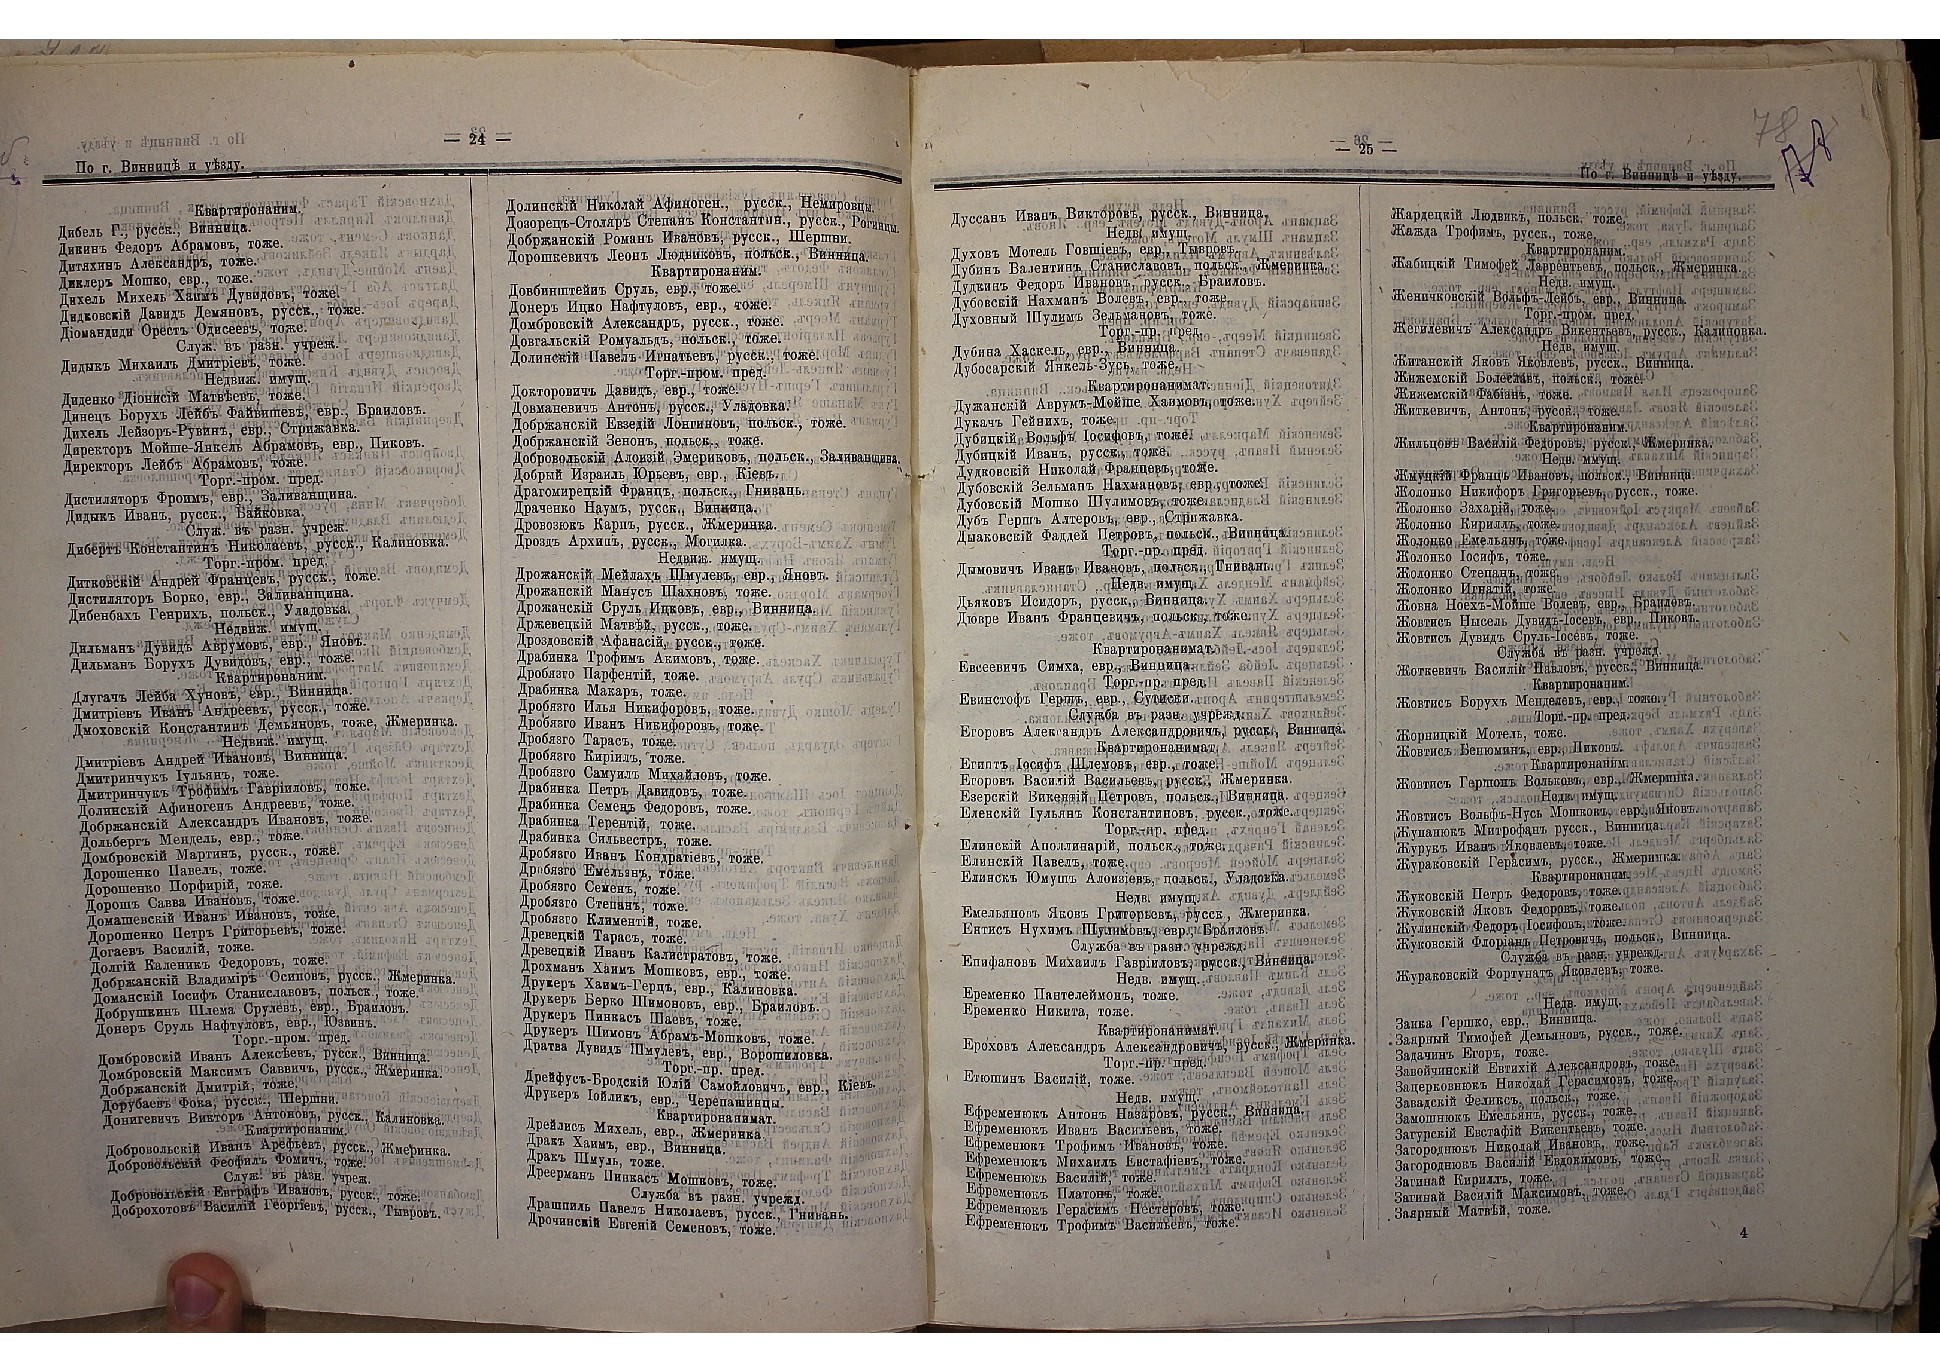 — 24 —
По г. Винницѣ и уѣзду.
Квартиронаним.
Дибель Г., русск., Винница.
Дикинъ Федоръ Абрамовъ, тоже.
Дитяхинъ Александръ, тоже.
Диклеръ Мошко, евр., тоже.
Дихель Михель Хаимъ Дувидовъ, тоже.
Дидковскій Давидъ Демяновъ, русск., тоже.
Діомандиди Орестъ Одисеевъ, тоже.
Служ. въ разн. учреж.
Дидыкъ Михаилъ Дмитріевъ, тоже.
Недвиж. имущ.
Диденко Діонисій Матвѣевъ, тоже.
Динецъ Борухъ Лейбъ Файвишевъ, евр., Браиловъ.
Дихель Лейзоръ-Рувинъ, евр., Стрижавка.
Директоръ Мойше-Янкель Абрамовъ, евр., Пиковъ.
Директоръ Лейбъ Абрамовъ, тоже.
Торг.-пром. пред.
Дистиляторъ Фроимъ, евр., Заливанщина.
Дидыкъ Иванъ, русск., Вайковка.
Служ. въ разн. учреж.
Дибертъ Константинъ Николаевъ, русск., Калиновка.
Торг.-пром. пред.
Дитковскій Андрей Францевъ, русск., тоже.
Дистиляторъ Борко, евр., Заливанщина.
Дибенбахъ Генрихъ, польск., Уладовка.
Недвиж. имущ.
Дильманъ Дувидъ Аврумовъ, евр., Яновъ.
Дильманъ Борухъ Дувидовъ, евр., тоже.
Квартиронаним.
Длугачъ Лейба Хуновъ, евр., Винница.
Дмитріевъ Иванъ Андреевъ, русск., тоже.
Дмоховскій Константинъ Демьяновъ, тоже, Жмеринка.
Недвиж. имущ.
Дмитріевъ Андрей Ивановъ, Винница.
Дмитринчукъ Іульянъ, тоже.
Дмитринчукъ Трофимъ Гавріиловъ, тоже.
Долинскій Афиногенъ Андреевъ, тоже.
Добржанскій Александръ Ивановъ, тоже.
Дольбергъ Мендель, евр., тоже.
Домбровскій Мартинъ, русск., тоже.
Дорошенко Павелъ, тоже.
Дорошенко Порфирій, тоже.
Дорошъ Савва Ивановъ, тоже.
Домашевскій Иванъ Ивановъ, тоже.
Дорошенко Петръ Григорьевъ, тоже.
Догаевъ Василій, тоже.
Долгій Каленикъ Федоровъ, тоже.
Добржанскій Владиміръ Осиповъ, русск., Жмеринка.
Доманскій Іосифъ Станиславовъ, польск., тоже.
Добрушкинъ Шлема Срулевъ, евр., Браиловъ.
Донеръ Сруль Нафтуловъ, евр., Юзвинъ.
Торг.-пром. пред.
Домбровскій Иванъ Алексѣевъ, русск., Винница.
Домбровскій Максимъ Саввичъ, русск., Жмеринка.
Добржанскій Дмитрій, тоже.
Дорубаевъ Фока, русск., Шершни.
Донигевичъ Викторъ Антоновъ, русск., Калиновка.
Квартиронаним.
Добровольскій Иванъ Арефьевъ, русск., Жмеринка.
Добровольскій Феофилъ Фомичъ, тоже.
Служ. въ разн. учреж.
Добровольскій Евграфъ Ивановъ, русск., тоже.
Доброхотовъ Василій Георгіевъ, русск., Тывровъ.
Долинскій Николай Афиноген., русск., Немировцы.
Дозорецъ-Столяръ Степанъ Константин., русск., Рогинцы.
Добржанскій Романъ Ивановъ, русск., Шершни.
Дорошкевичъ Леонъ Людвиковъ, польск., Винница.
Квартиронаним.
Довбинштейнъ Сруль, евр., тоже.
Донеръ Ицко Нафтуловъ, евр., тоже.
Домбровскій Александръ, русск., тоже.
Довгальскій Ромуальдъ, польск., тоже.
Долинскій Павелъ Игнатьевъ, русск., тоже.
Торг.-пром. пред.
Докторовичъ Давидъ, евр., тоже.
Довманевичъ Антонъ, русск., Уладовка.
Добржанскій Евзедій Лонгиновъ, польск., тоже.
Добржанскій Зенонъ, польск., тоже.
Добровольскій Алоизій Эмериковъ, польск., Заливанщина.
Добрый Израиль Юрьевъ, евр., Кіевъ.
Драгомирецкій Францъ, польск., Гнивань.
Драченко Наумъ, русск., Винница.
Дровозюкъ Карпъ, русск., Жмеринка.
Дроздъ Архипъ, русск., Могилка.
Недвиж. имущ.
Дрожанскій Мейлахъ Шмулевъ, евр., Яновъ.
Дрожанскій Манусъ Шахновъ, тоже.
Дрожанскій Сруль Ицковъ, евр., Винница.
Држевецкій Матвѣй, русск., тоже.
Дроздовскій Афанасій, русск., тоже.
Драбинка Трофимъ Акимовъ, тоже.
Дроблзго Парфентій, тоже.
Драбинка Макаръ, тоже.
Дробязго Илья Никифоровъ, тоже.
Дробязго Иванъ Никифоровъ, тоже.
Дробязго Тарасъ, тоже.
Дробязго Киріилъ, тоже.
Дробязго Самуилъ Михайловъ, тоже.
Драбинка Петръ Давидовъ, тоже.
Драбинка Семенъ Федоровъ, тоже.
Драбинка Терентій, тоже.
Драбинка Сильвестръ, тоже.
Дробязго Иванъ Кондратіевъ, тоже.
Дробязго Емельянъ, тоже.
Дробязго Семенъ, тоже.
Дробязго Степанъ, тоже.
Дробязго Климентій, тоже.
Древецкій Тарасъ, тоже.
Древецкій Иванъ Калистратовъ, тоже.
Дрохманъ Хаимъ Мошковъ, евр., тоже.
Друкеръ Хаимъ-Герцъ, евр., Калиновка.
Друкеръ Берко Шимоновъ, евр., Браиловъ.
Друкеръ Пинкасъ Шаевъ, тоже.
Друкеръ Шимонъ Абрамъ-Мошковъ, тоже.
Дратва Дувидъ Шмулевъ, евр., Ворошиловка.
Торг.-пр. пред.
Дрейфусъ-Бродскій Юлій Самойловичъ, евр., Кіевъ.
Друкеръ Іойликъ, евр., Черепашинцы.
Квартиронанимат.
Дрейлисъ Михель, евр., Жмеринка.
Дракъ Хаимъ, евр., Винница.
Дракъ Шмуль, тоже.
Дреерманъ Пинкасъ Мошковъ, тоже.
Служба въ разн. учрежд.
Драшпиль Павелъ Николаевъ, русск., Гнивань.
Дрочинскій Евгеній Семеновъ, тоже.
— 25 —
По г. Винницѣ и уѣзду.
78
Дуссанъ Иванъ Викторовъ, русск., Винница.
Недв. имущ.
Духовъ Мотель Говшіевъ, евр., Тывровъ.
Дубинъ Валентинъ Станиславовъ, польск., Жмеринка.
Дудкинъ Федоръ Ивановъ, русск., Браиловъ.
Дубовскій Нахманъ Волевъ, евр., тоже.
Духовный Шулимъ Зельмановъ, тоже.
Торг.-пр. пред.
Дубина Хаскель, евр., Винница.
Дубосарскій Янкель-Зусь, тоже.
Квартиронанимат.
Дужанскій Аврумъ-Мойше Хаимовъ, тоже.
Дукачъ Гейнихъ, тоже.
Дубицкій Вольфъ Іосифовъ, тоже.
Дубицкій Иванъ, русск., тоже.
Дудковскій Николай Францевъ, тоже.
Дубовскій Зельманъ Нахмановъ, евр., тоже.
Дубовскій Мошко Шулимовъ, тоже.
Дубъ Гершъ Алтеровъ, евр., Стрижавка.
Дыаковскій Фаддей Петровъ, польск., Винница.
Торг.-пр. пред.
Дымовичъ Иванъ Ивановъ, польск., Гнивань.
Недв. имущ.
Дьяковъ Исидоръ, русск., Винница.
Дювре Иванъ Францевичъ, польск., тоже.
Квартиронанимат.
Евсеевичъ Симха, евр., Винница.
Торг.-пр. пред.
Евинстофъ Гершъ, евр., Сутиски.
Служба въ разн. учрежд.
Егоровъ Александръ Александровичъ, русск., Винница.
Квартиронанимат.
Египтъ Іосифъ Шлемовъ, евр., тоже.
Егоровъ Василій Васильевъ, русск., Жмеринка.
Езерскій Викентій Петровъ, польск., Винница.
Еленскій Іульянъ Константиповъ, русск., тоже.
Торг.-пр. пред.
Елинскій Аполлинарій, польск., тоже.
Елинскій Павелъ, тоже.
Елинскъ Юмушъ Алоизіевъ, польск., Уладовка.
Недв. имущ.
Емельяновъ Яковъ Григорьевъ, русск., Жмеринка.
Ентисъ Нухимъ Шулимовъ, евр., Браиловъ.
Служба въ разн. учрежд.
Епифановъ Михаилъ Гавріиловъ, русск., Винница.
Недв. имущ.
Еременко Пантелеймонъ, тоже.
Еременко Никита, тоже.
Квартиронанимат.
Ероховъ Александръ Александровичъ, русск., Жмеринка.
Торг.-пр. пред.
Етюшинъ Василій, тоже.
Недв. имущ.
Ефременюкъ Антонъ Назаровъ, русск., Винница.
Ефременюкъ Иванъ Васильевъ, тоже.
Ефременюкъ Трофимъ Ивановъ, тоже.
Ефременюкъ Михаилъ Евстафіевъ, тоже.
Ефременюкъ Василій, тоже.
Ефременюкъ Платонъ, тоже.
Ефременюкъ Герасимъ Нестеровъ, тоже.
Ефременюкъ Трофимъ Васильевъ, тоже.
Жардецкій Людвикъ, польск., тоже.
Жажда Трофимъ, русск., тоже.
Квартиронаним.
Жабицкій Тимофей Лаврентьевъ, польск., Жмеринка.
Недв. имущ.
Женичковскій Вольфъ-Лейбъ, евр., Винница.
Торг-пром. пред.
Жегилевичъ Александръ Викентьевъ, русск., Калиновка.
Недв. имущ.
Житанскій Яковъ Яковлевъ, русск., Винница.
Жижемскій Болеславъ, польск., тоже.
Жижемскій Фабіянъ, тоже.
Житкевичъ, Антонъ, русск., тоже.
Квартиронаним.
Жильцовъ Василій Федоровъ, русск., Жмеринка.
Недв. имущ.
Жмуцкій Францъ Ивановъ, польск., Винница.
Жолонко Никифоръ Григорьевъ, русск., тоже.
Жолонко Захарій, тоже.
Жолонко Кириллъ, тоже.
Жолонко Емельянъ, тоже.
Жолонко Іосифъ, тоже.
Жолонко Степанъ, тоже.
Жолонко Игнатій, тоже.
Жовна Ноехъ-Мойше Волевъ, евр., Браиловъ.
Жовтисъ Нысель Дувидъ-Іосевъ, евр., Пиковъ.
Жовтисъ Дувидъ Сруль-Іосевъ, тоже.
Служба въ разн. учрежд.
Жоткевичъ Василій Павловъ, русск., Винница.
Квартиронаним.
Жовтисъ Борухъ Менделевъ, евр., тоже.
Торг.-пр. пред.
Жорницкій Мотель, тоже.
Жовтисъ Бенюминъ, евр., Пиковъ.
Квартиронаним.
Жовтисъ Гершонъ Вольковъ, евр., Жмеринка.
Недв. имущ.
Жовтисъ Вольфъ-Нусь Мошковъ, евр., Яновъ.
Жупанюкъ Митрофанъ русск., Винница.
Журукъ Иванъ Яковлевъ, тоже.
Жураковскій Герасимъ, русск., Жмеринка.
Квартиронаним.
Жуковскій Петръ Федоровъ, тоже.
Жуковскій Яковъ Федоровъ, тоже.
Жулинскій Федоръ Іосифовъ, тоже.
Жуковскій Флоріанъ Петровичъ, польск., Винница.
Служба въ разн. учрежд.
Жураковскій Фортунатъ Яковлевъ, тоже.
Недв. имущ.
Заика Гершко, евр., Винница.
Заярный Тимофей Демьяновъ, русск., тоже.
Задачинъ Егоръ, тоже.
Завойчинскій Евтихій Александровъ, тоже.
Зацерковнюкъ Николай Герасимовъ, тоже.
Завадскій Феликсъ, польск., тоже.
Замошнюкъ Емельянъ, русск., тоже.
Загурскій Евстафій Викентьевъ, тоже.
Загороднюкъ Николай Ивановъ, тоже.
Загороднюкъ Василій Евдокимовъ, тоже.
Загинай Кириллъ, тоже.
Загинай Василій Максимовъ, тоже.
Заярный Матвѣй, тоже.
4